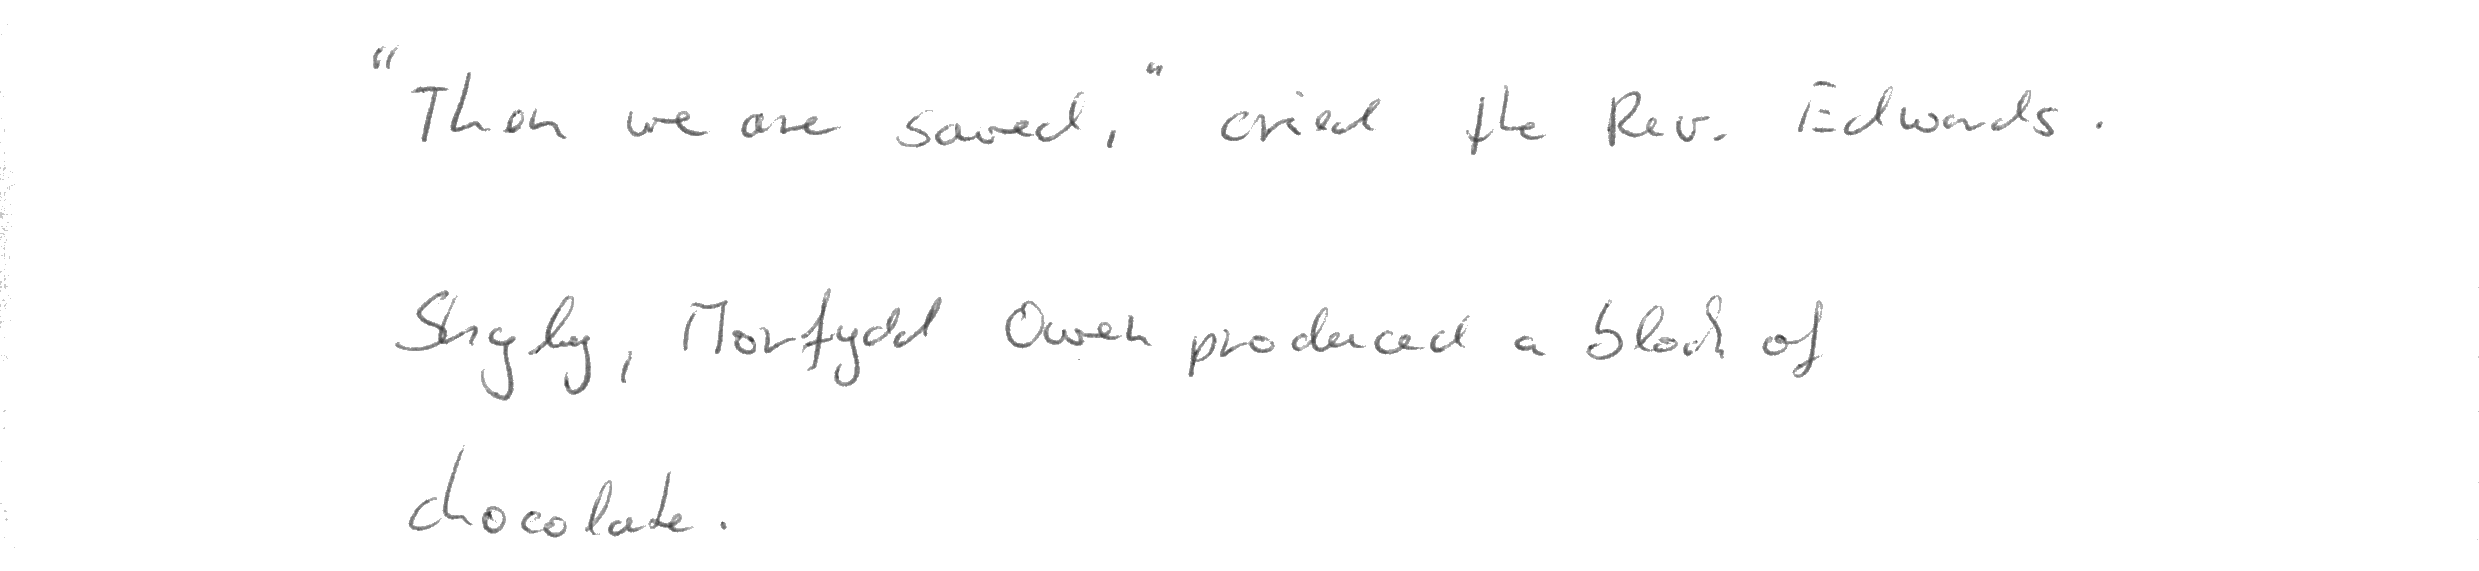 "Then we are saved," cried the Rev. Edwards.
Shyly, Morfydd Owen produced a block of
chocolate.